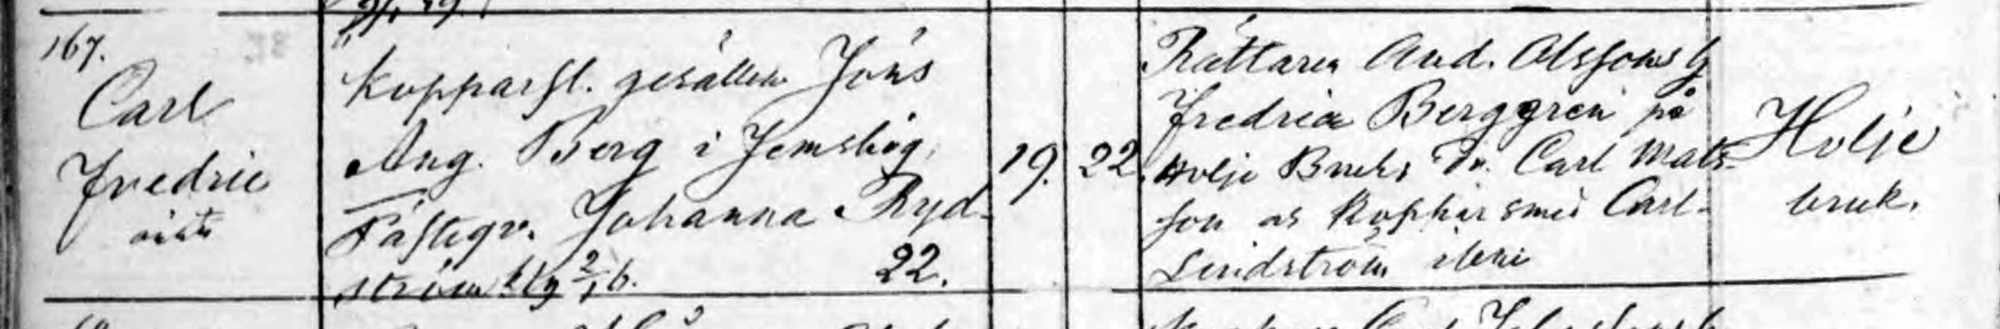 167.
Carl
Fredric
Kopparsl. gesällen Jöns
Aug. Berg i Jemshög,
Fästeqv. Johanna Ryd-
ström
22.
19. 22.
Rättaren And. Olssons h
Fredrica Berggren på
Holje Bruk, Dr. Carl Mats-
son as Kopparsmed Carl
Lindström
Holje
bruk.